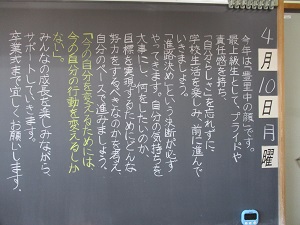 4月10日月曜
今年は、「豊里中の顔」です。
最上級生として、プライドや
責任感を持ち、
「自分らしさ」を忘れずに、
学校生活を楽しみ、前に進んで
いきましょう。
「進路決め」という決断が必ず
やってきます。自分の気持ちを
大事にし、何をしたいのか、
目標を実現するためにどんな
努力をするべきなのかを考え、
自分のペースで進みましょう。
『今の自分を変えるためには、
今の自分の行動を変えるしか
ない』。
みんなの成長を楽しみながら、
サポートしていきます。
卒業式まで宜しくお願いします。